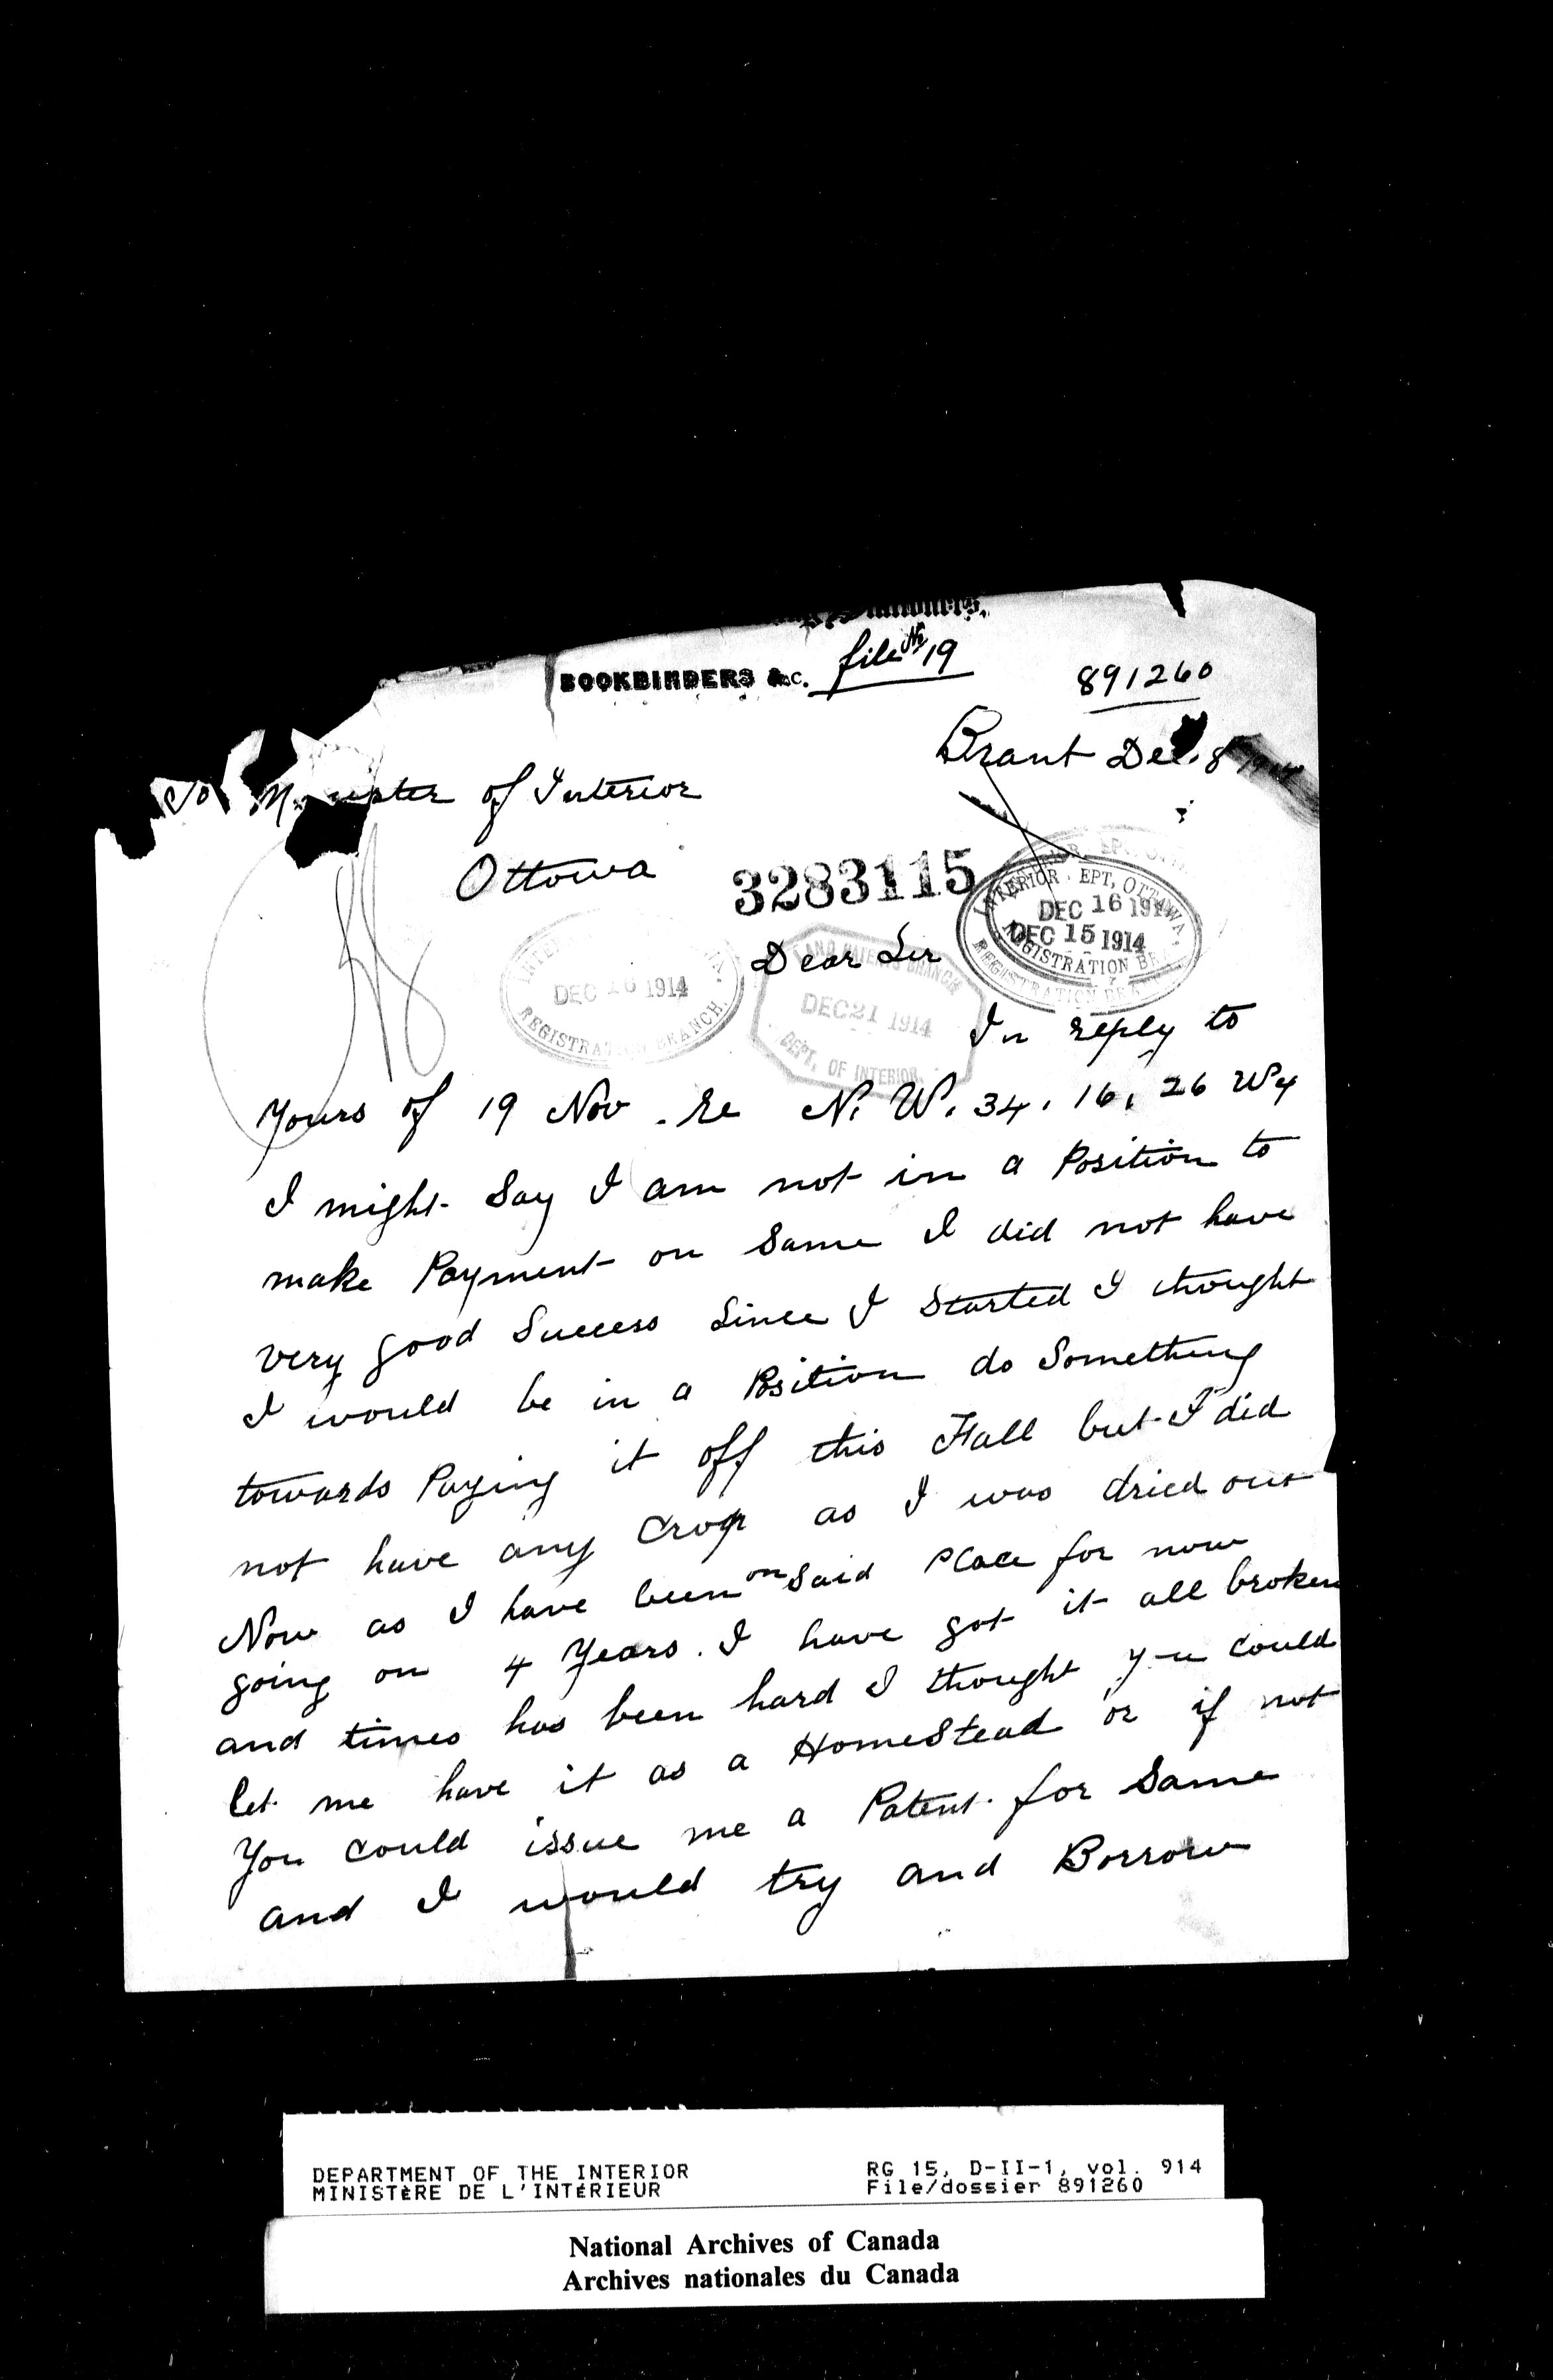 BOOKBINDERS &c. file No 19
891260
Brant Dec. 8
To Minister of Interior
Ottowa
3283115
INTERIOR DEPT, OTTAWA.
DEC 16 1914
DEC 15 1914
REGISTRATION BRANCH
DEC 16 1914
REGISTRATION BRANCH.
Dear Sir
LAND PATENTS BRANCH
DEC 21 1914
DEPT. OF INTERIOR.
In reply to
Yours of 19 Nov. re N. W. 34. 16. 26 W4
I might Say I am not in a Position to
make Payment on Same I did not have
very good Success Since I Started I thought
I would be in a Position do Something
towards Paying it off this Fall but I did
not have any Crop as I was dried out
Now as I have been on Said Place for now
going on 4 Years. I have got it all broken
and times has been hard I thought you Could
let me have it as a HomeStead or if not
You Could issue me a Patent for Same
and I would try and Borrow
DEPARTMENT OF THE INTERIOR RG 15, D-II-1, vol. 914
MINISTÈRE DE L'INTÉRIEUR File/dossier 891260
National Archives of Canada
Archives nationales du Canada